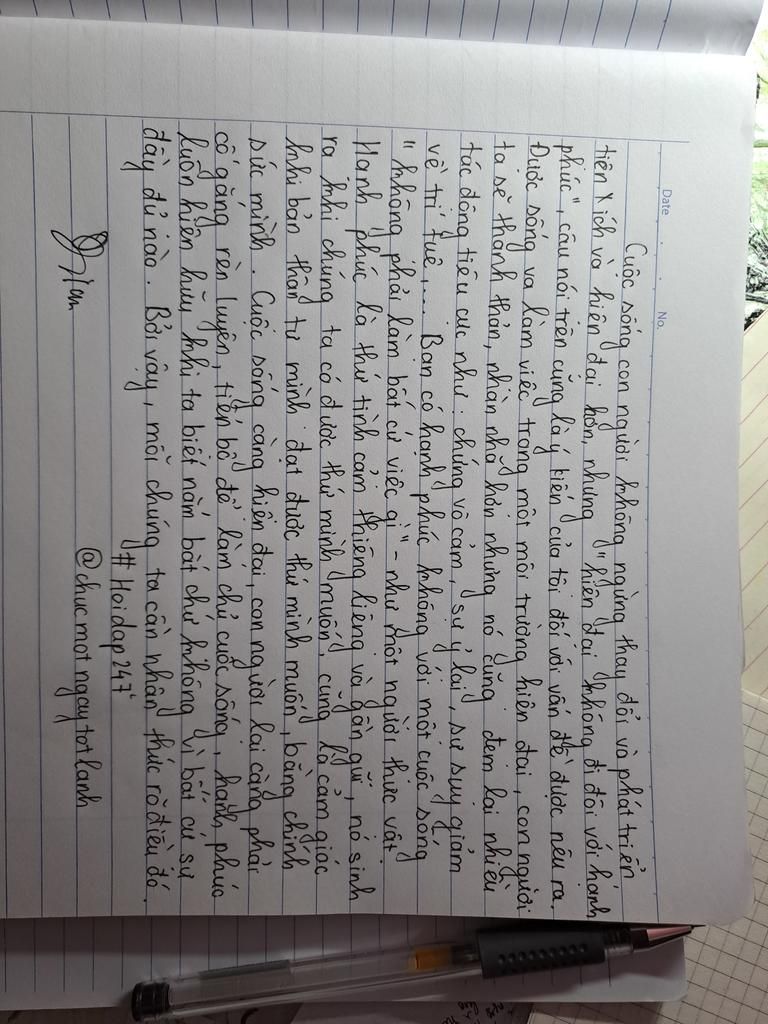 Date No.
Cuộc sống con người không ngừng thay đổi và phát triển
tiện x ích và hiện đại hơn, nhưng "hiện đại không đi đôi với hạnh
phúc", câu nói trên cũng là ý kiến của tôi đối với vấn đề được nêu ra.
Được sống và làm việc trong một môi trường hiện đại, con người
ta sẽ thanh thản, nhàn nhã hơn nhưng nó cũng đem lại nhiều
tác động tiêu cực như: chứng vô cảm, sự ỷ lại, sự suy giảm
về trí tuệ,... Bạn có hạnh phúc không với một cuộc sống
"không phải làm bất cứ việc gì" - như một người thực vật
Hạnh phúc là thứ tình cảm thiêng liêng và gần gũi, nó sinh
ra khi chúng ta có được thứ mình muốn, cũng là cảm giác
khi bản thân tự mình đạt được thứ mình muốn, bằng chính
sức mình. Cuộc sống càng hiện đại, con người lại càng phải
cố gắng rèn luyện, tiến bộ để làm chủ cuộc sống, hạnh phúc
luôn hiện hữu khi ta biết nắm bắt chứ không vì bất cứ sự
đầy đủ nào. Bởi vậy, mỗi chúng ta cần nhận thức rõ điều đó.
#Hoidap247
@chucmotngaytotlanh